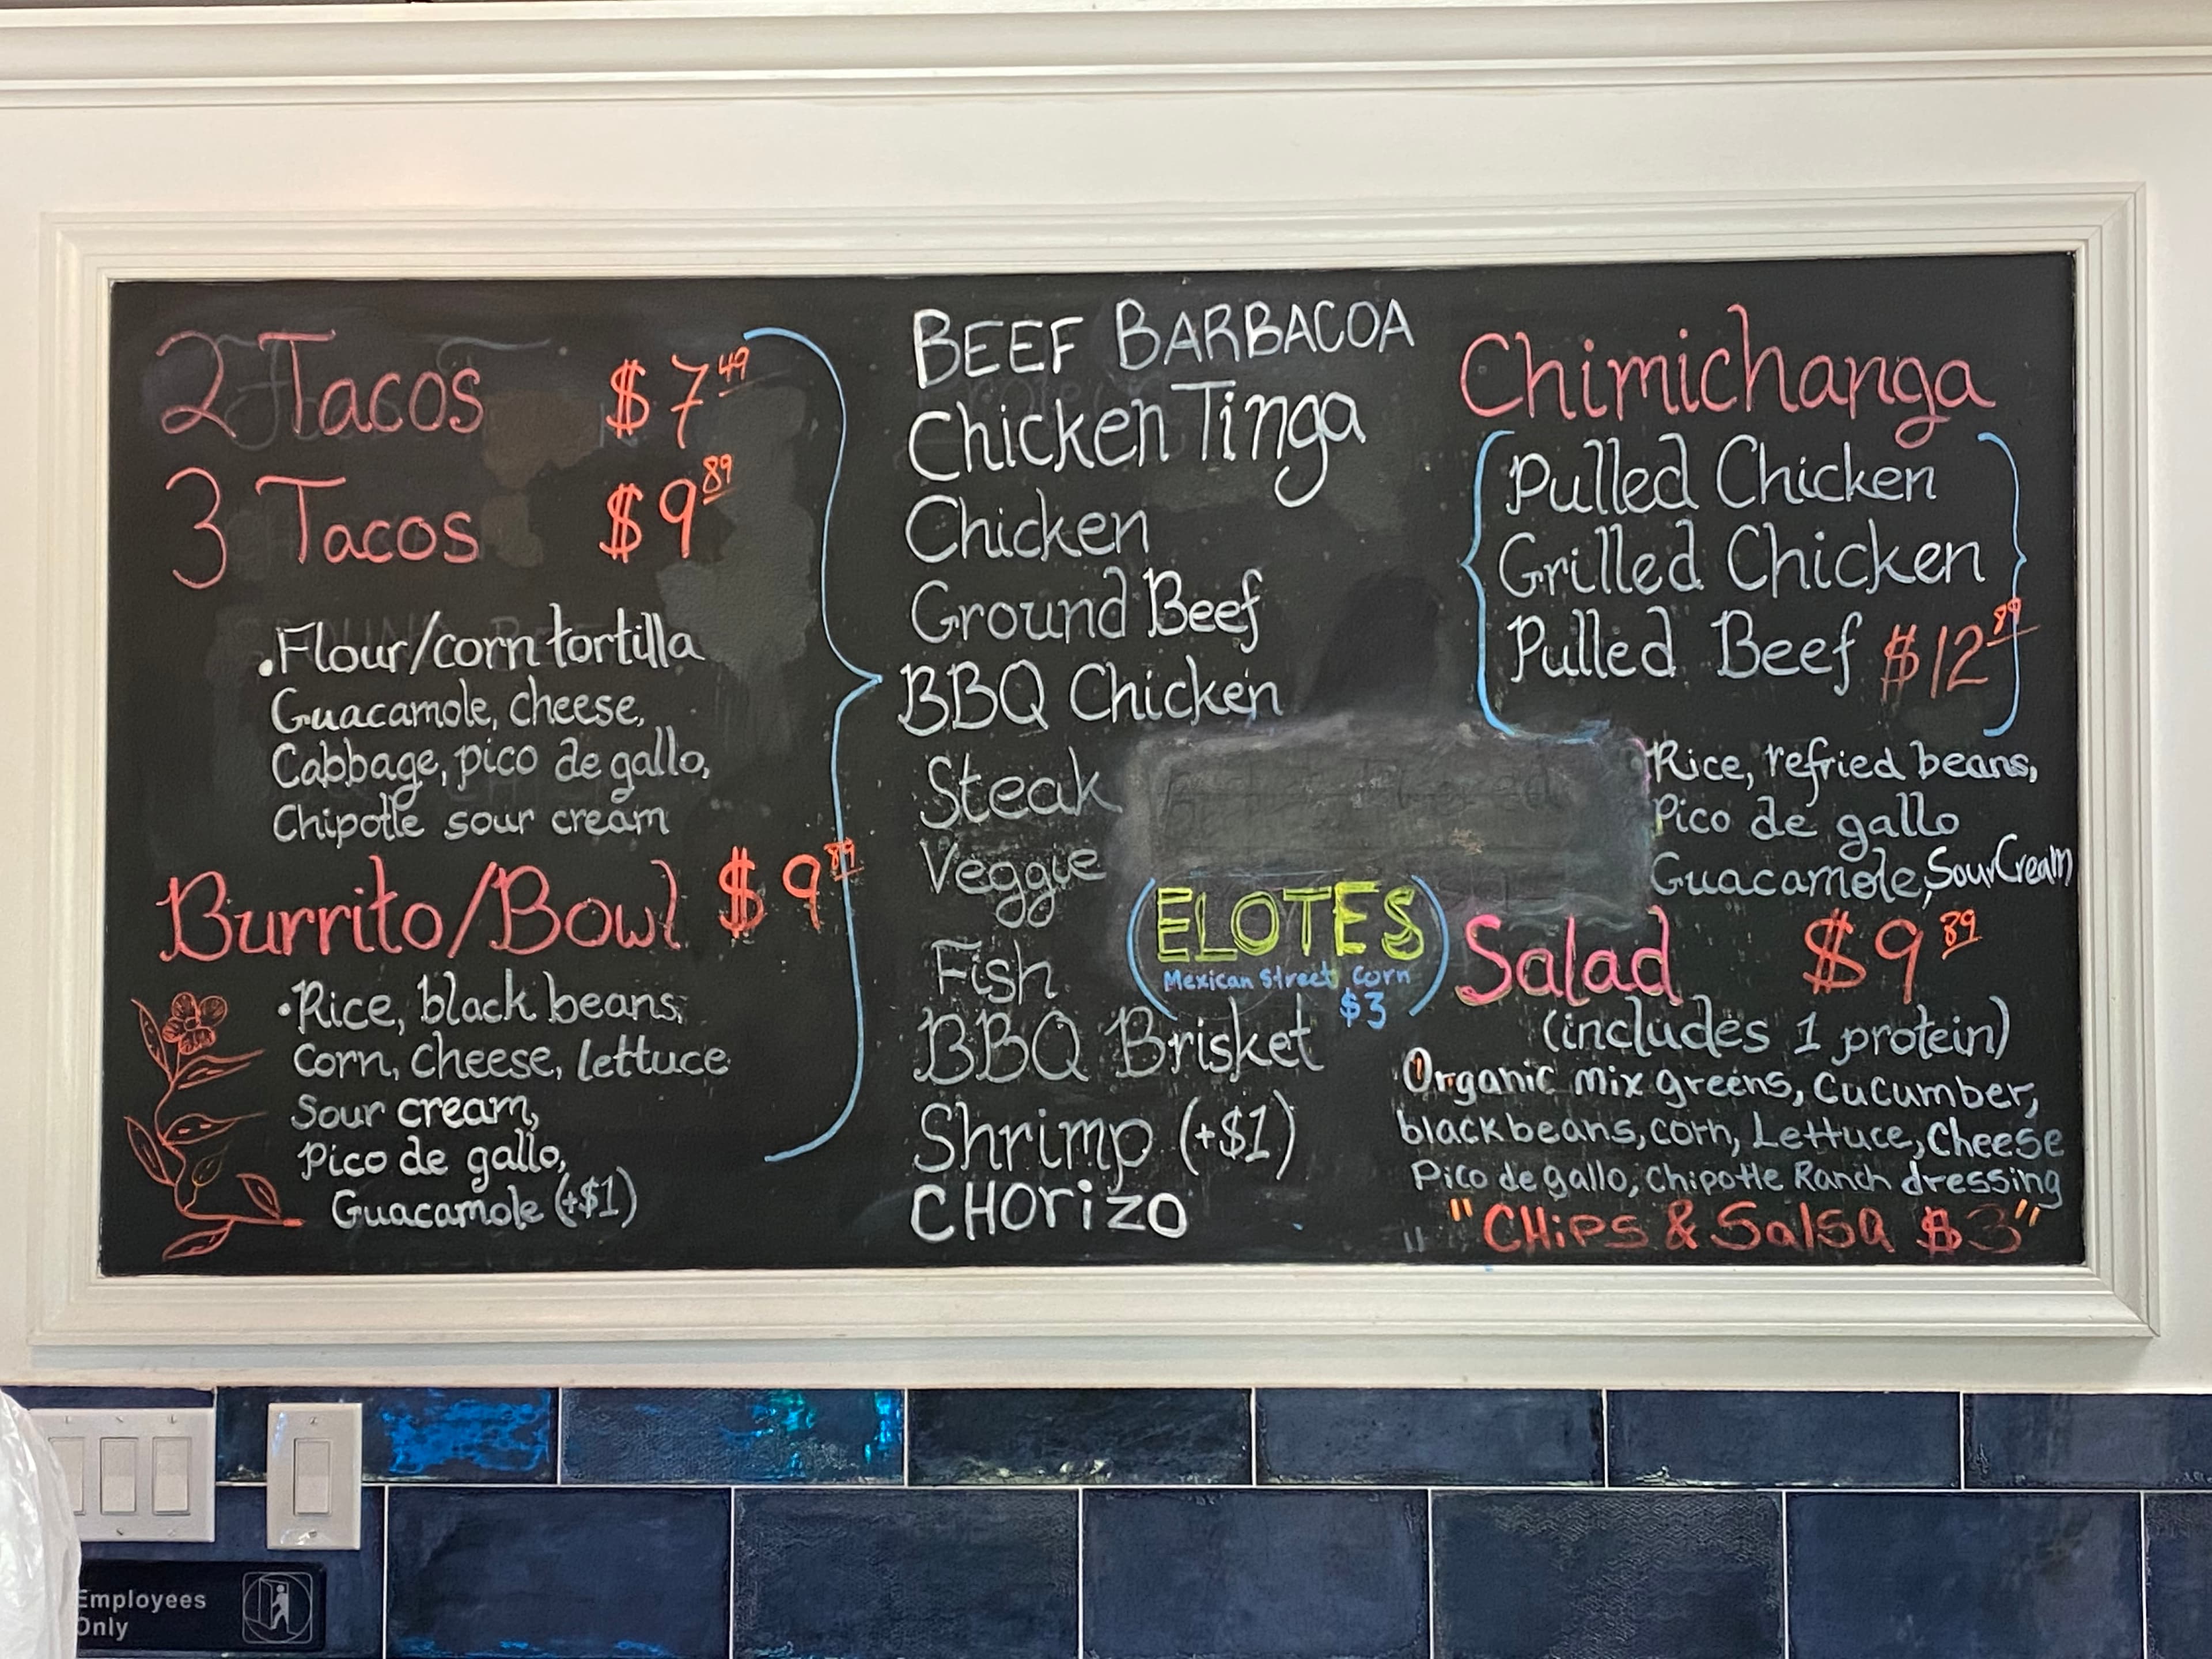 2 Tacos $7.49
3 Tacos $9.89
.Flour/corn tortilla
Guacamole, cheese,
Cabbage, pico de gallo,
Chipotle sour cream
Burrito/Bowl $9.89
•Rice, black beans,
Corn, Cheese, lettuce
Sour cream,
Pico de gallo,
Guacamole (+$1)
BEEF BARBACOA
Chicken Tinga
Chicken
Ground Beef
BBQ Chicken
Steak
Veggie
Fish
BBQ Brisket
Shrimp (+$1)
CHORIZO
(ELOTES)
Mexican Street Corn
$3
Chimichanga
Pulled Chicken
Grilled Chicken
Pulled Beef $12.89
Rice, refried beans,
Pico de gallo
Guacamole, Sour Cream
Salad $9.89
(includes 1 protein)
Organic mix greens, Cucumber,
black beans, corn, Lettuce, Cheese
Pico de gallo, Chipotle Ranch dressing
"CHiPS & Salsa $3"
Employees
Only